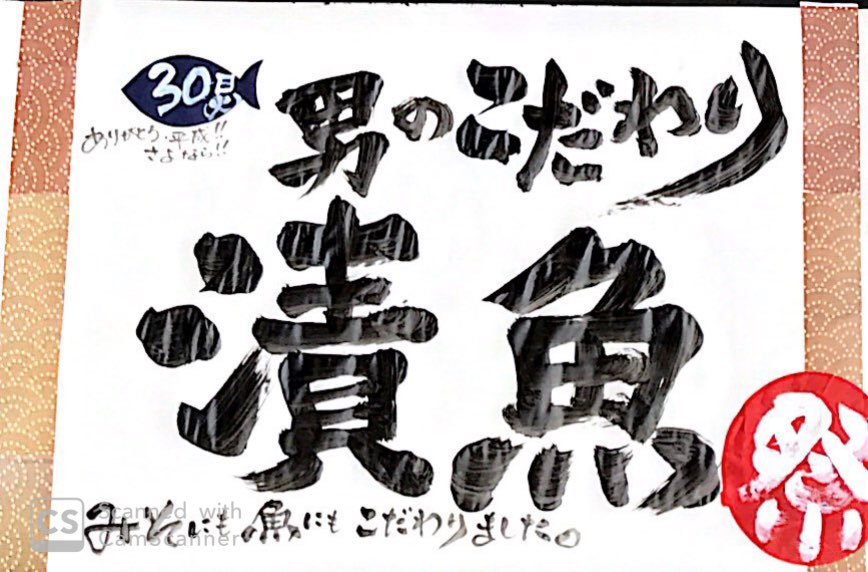 30思
ありがとう・平成!!
さよなら!!
男のこだわり
漬魚
祭
みそにも 魚にも こだわりました。
CS Scanned with
CamScanner